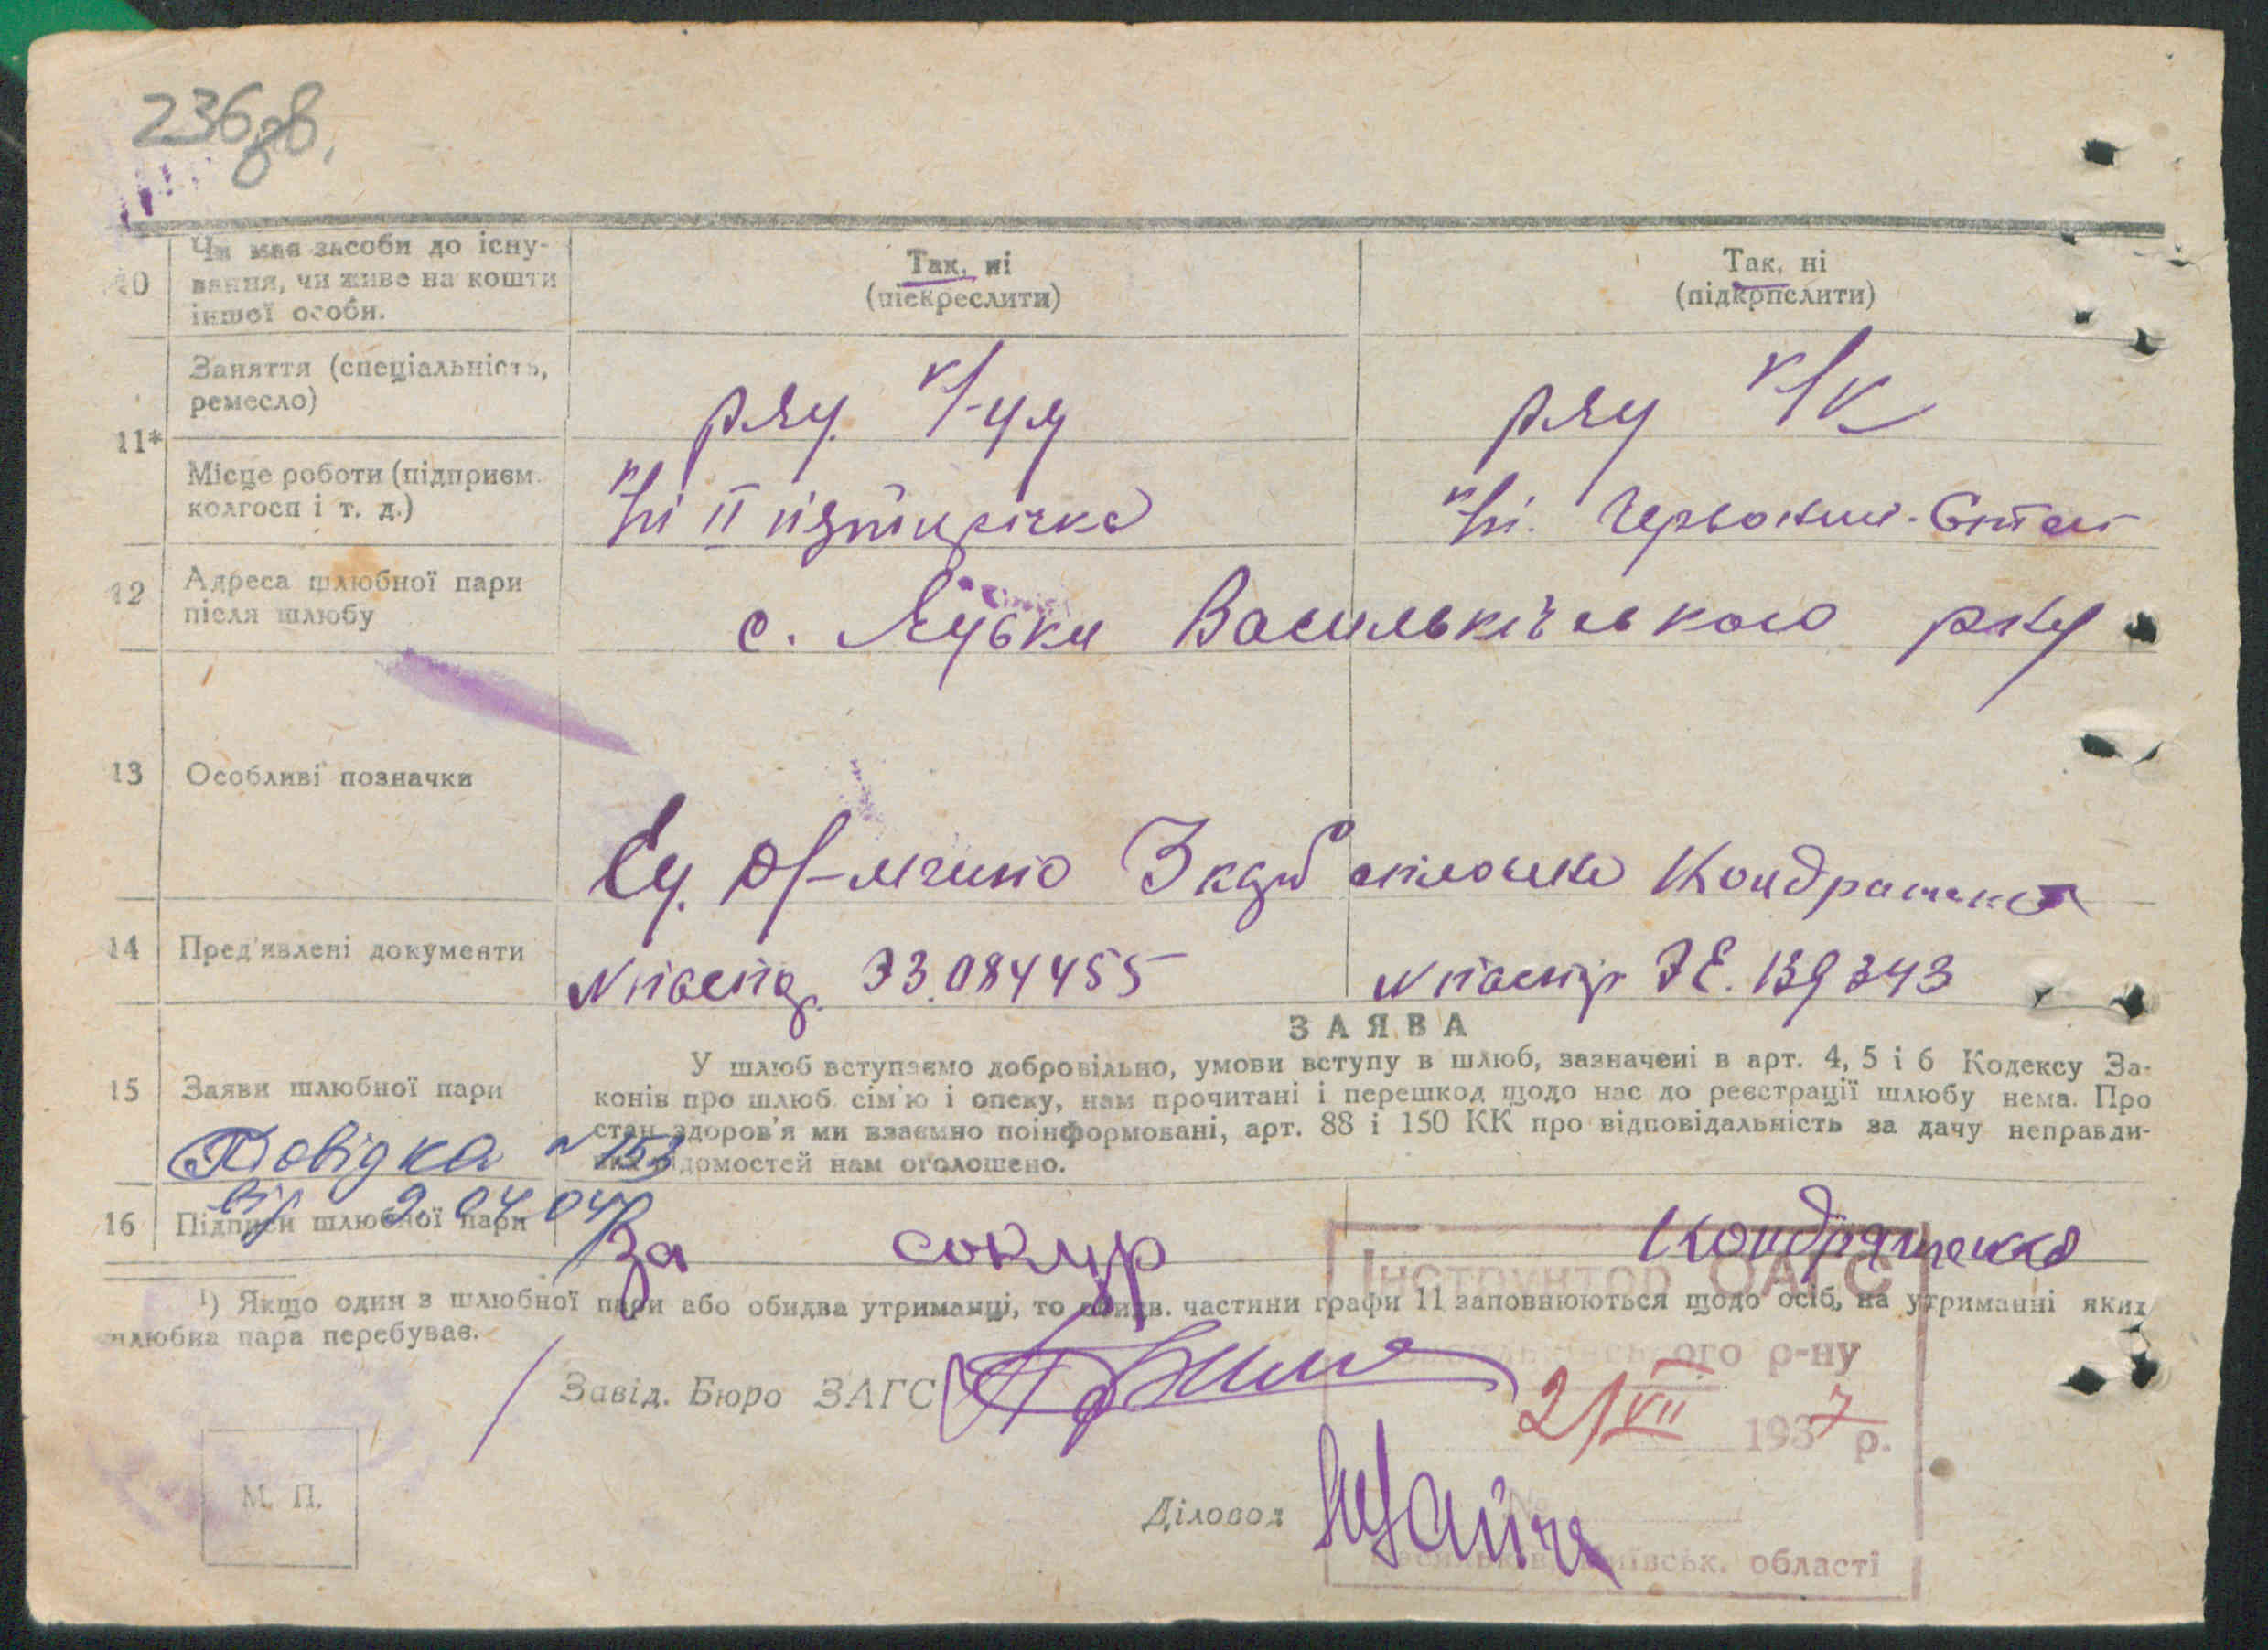 236зв.
10
Чи має засоби до існу-
вання, чи живе на кошти
іншої особи.
Так, ні
(підкреслити)
Так, ні
(підкрпслити)
11*
Заняття (спеціальність,
ремесло)
ряд. к/-ця
ряд к/к
Місце роботи (підприєм.
колгосп і т. д.)
к/гі ІІ пʼятирічка
к/гі. Червоний
12
Адреса шлюбної пари
після шлюбу
с. Яцьки Васильківського р-ну
13
Особливі позначки
Кондратенко
14
Пред'явлені документи
№ паспор. ЭЗ.084455
№ паспор ЭЕ. 139343
15
Заяви шлюбної пари
ЗАЯВА
У шлюб вступаємо добровільно, умови вступу в шлюб, зазначені в арт. 4, 5 і 6 Кодексу За-
конів про шлюб сім'ю і опеку, нам прочитані і перешкод щодо нас до реєстрації шлюбу нема. Про
стан здоров'я ми взаємно поінформовані, арт. 88 і 150 КК про відповідальність за дачу неправди-
вих відомостей нам оголошено.
Довідка №153
від 9.04.04р
16
Підписи шлюбної пари
За сокур
Кондратенко
¹) Якщо один з шлюбної пари або обидва утриманці, то обидв. частини графи 11 заповнюються щодо осіб, на утриманні яких
шлюбна пара перебуває.
Інструктор ОАГС
ого р-ну
Завід. Бюро ЗАГС
21/VII 1937 р.
М. П.
Діловод
Київськ. області